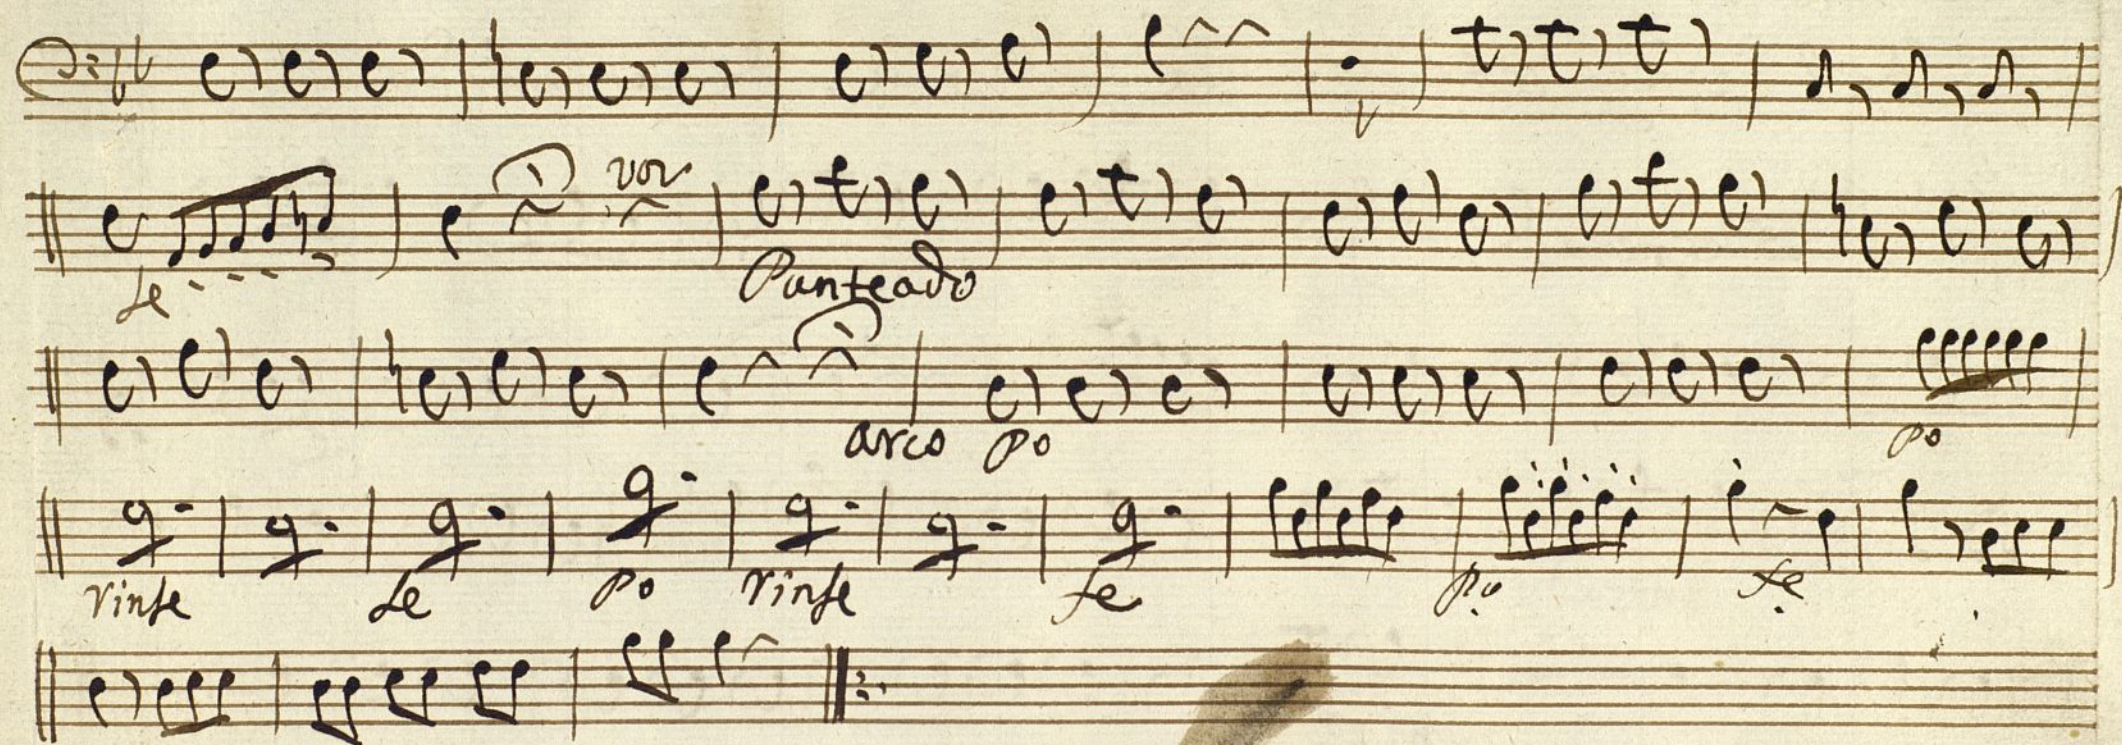 voz
fe Punteado
arco po po
rinfe fe po rinfe fe po fe